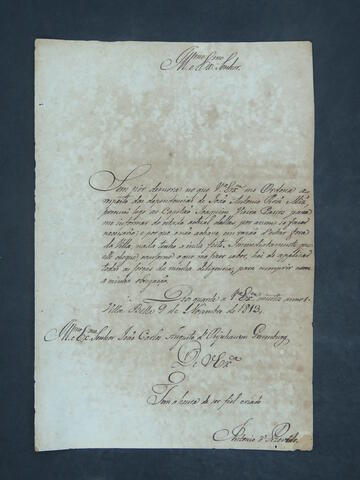 Illmo e Exmo Senhor.
Sem pôr demora no que Va Exa me Ordena a
respeito das dependencias de João Antonio
logo ao Capitão Joaquim Vieira Passos para
me informar do estado actual dellas, por
e porque não achava em razão d'estar fora
da Villa, nada tenho a inda feito. Immediatamente que
elle chegue, conforme o que me fizer saber, hei de applicar
todas as forças da minha deligencia, para cumprir com
a minha obrigação.
Deos guarde a Va Exa muitos annos.
Villa Bella 9 de Novembro de 1813.
Illmo e Exmo Senhor João Carlos Augusto d'Oeynhausen Gravenburg
De Va Exa
Tem a honra de ser fiel criado
Antonio